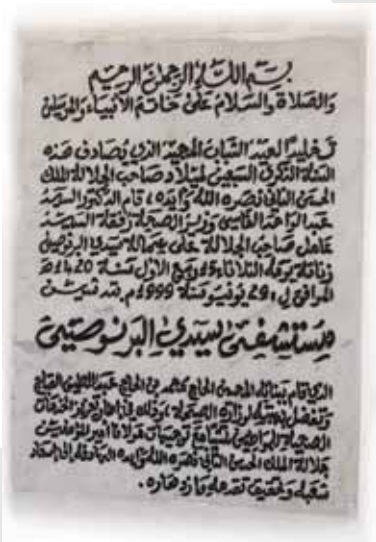 بسم الله الرحمن الرحيم
والصلاة والسلام على خاتم الأنبياء والمرسلين
تخليدا لعيد الشباب المجيد الذي يصادف هذه
السنة الذكرى السبعين لميلاد صاحب الجلالة الملك
الحسن الثاني نصره الله وأيده، قام الدكتور السيد
عبد الواحد الفاسي وزير الصحة رفقة السيد
عامل صاحب الجلالة على عمالة سيدي البرنوصي
زناتة يومه الثلاثاء 15 ربيع الأول سنة 1420 هـ
الموافق ل 29 يونيو سنة 1999م بتدشين
مستشفى سيدي البرنوصي
الذي قام ببنائه المحسن الحاج محمد بن الحاج عبد اللطيف
وتفضل لوزارة الصحة، وذلك في إطار تعزيز الخدمات
الصحية توجيهات مولانا أمير المؤمنين
جلالة الملك الحسن الثاني نصره الله وأيده إلى إسعاد
شعبه وتحقيق تقدمه وازدهاره.